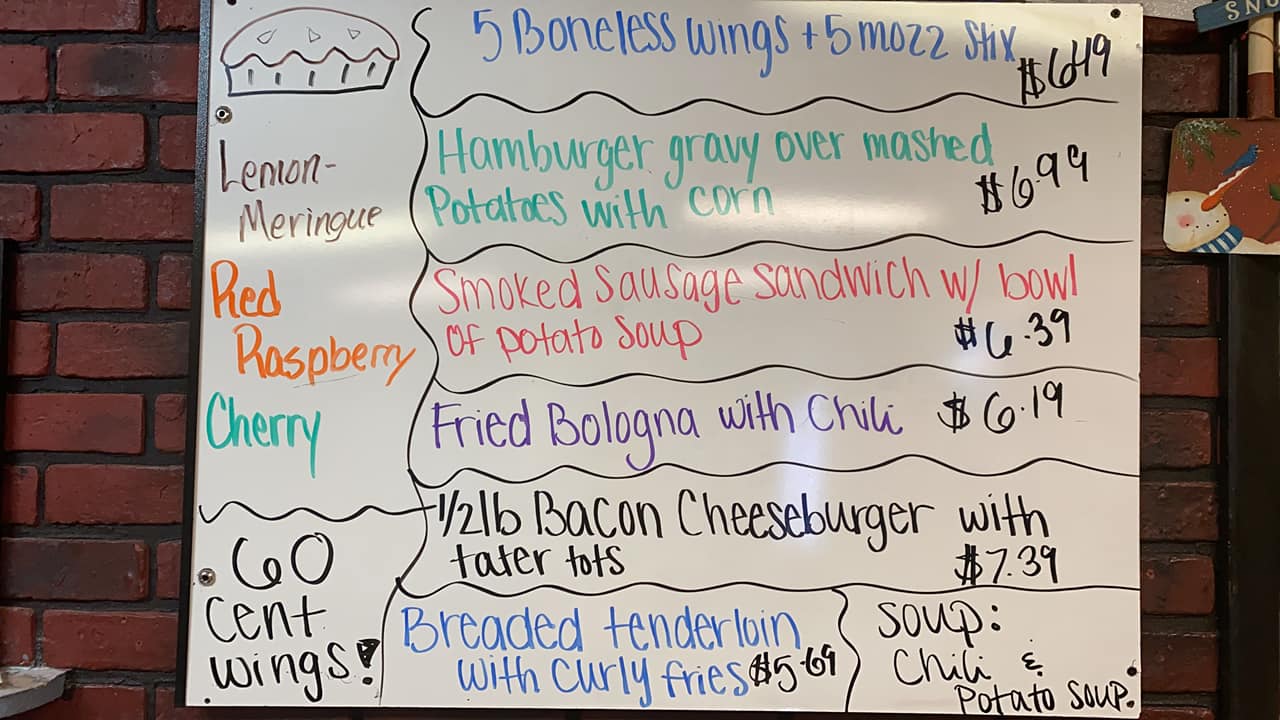 5 Boneless wings + 5 mozz stix
$6.49
Hamburger gravy over mashed
Potatoes with corn
$6.99
Smoked Sausage sandwich w/ bowl
of potato soup
$6.39
Fried Bologna with Chili $6.19
1/2lb Bacon Cheeseburger with
tater tots
$7.39
Breaded tenderloin
with curly fries $5.69
Soup:
Chili &
Potato soup.
Lemon-
Meringue
Red
Raspberry
Cherry
60
cent
wings!